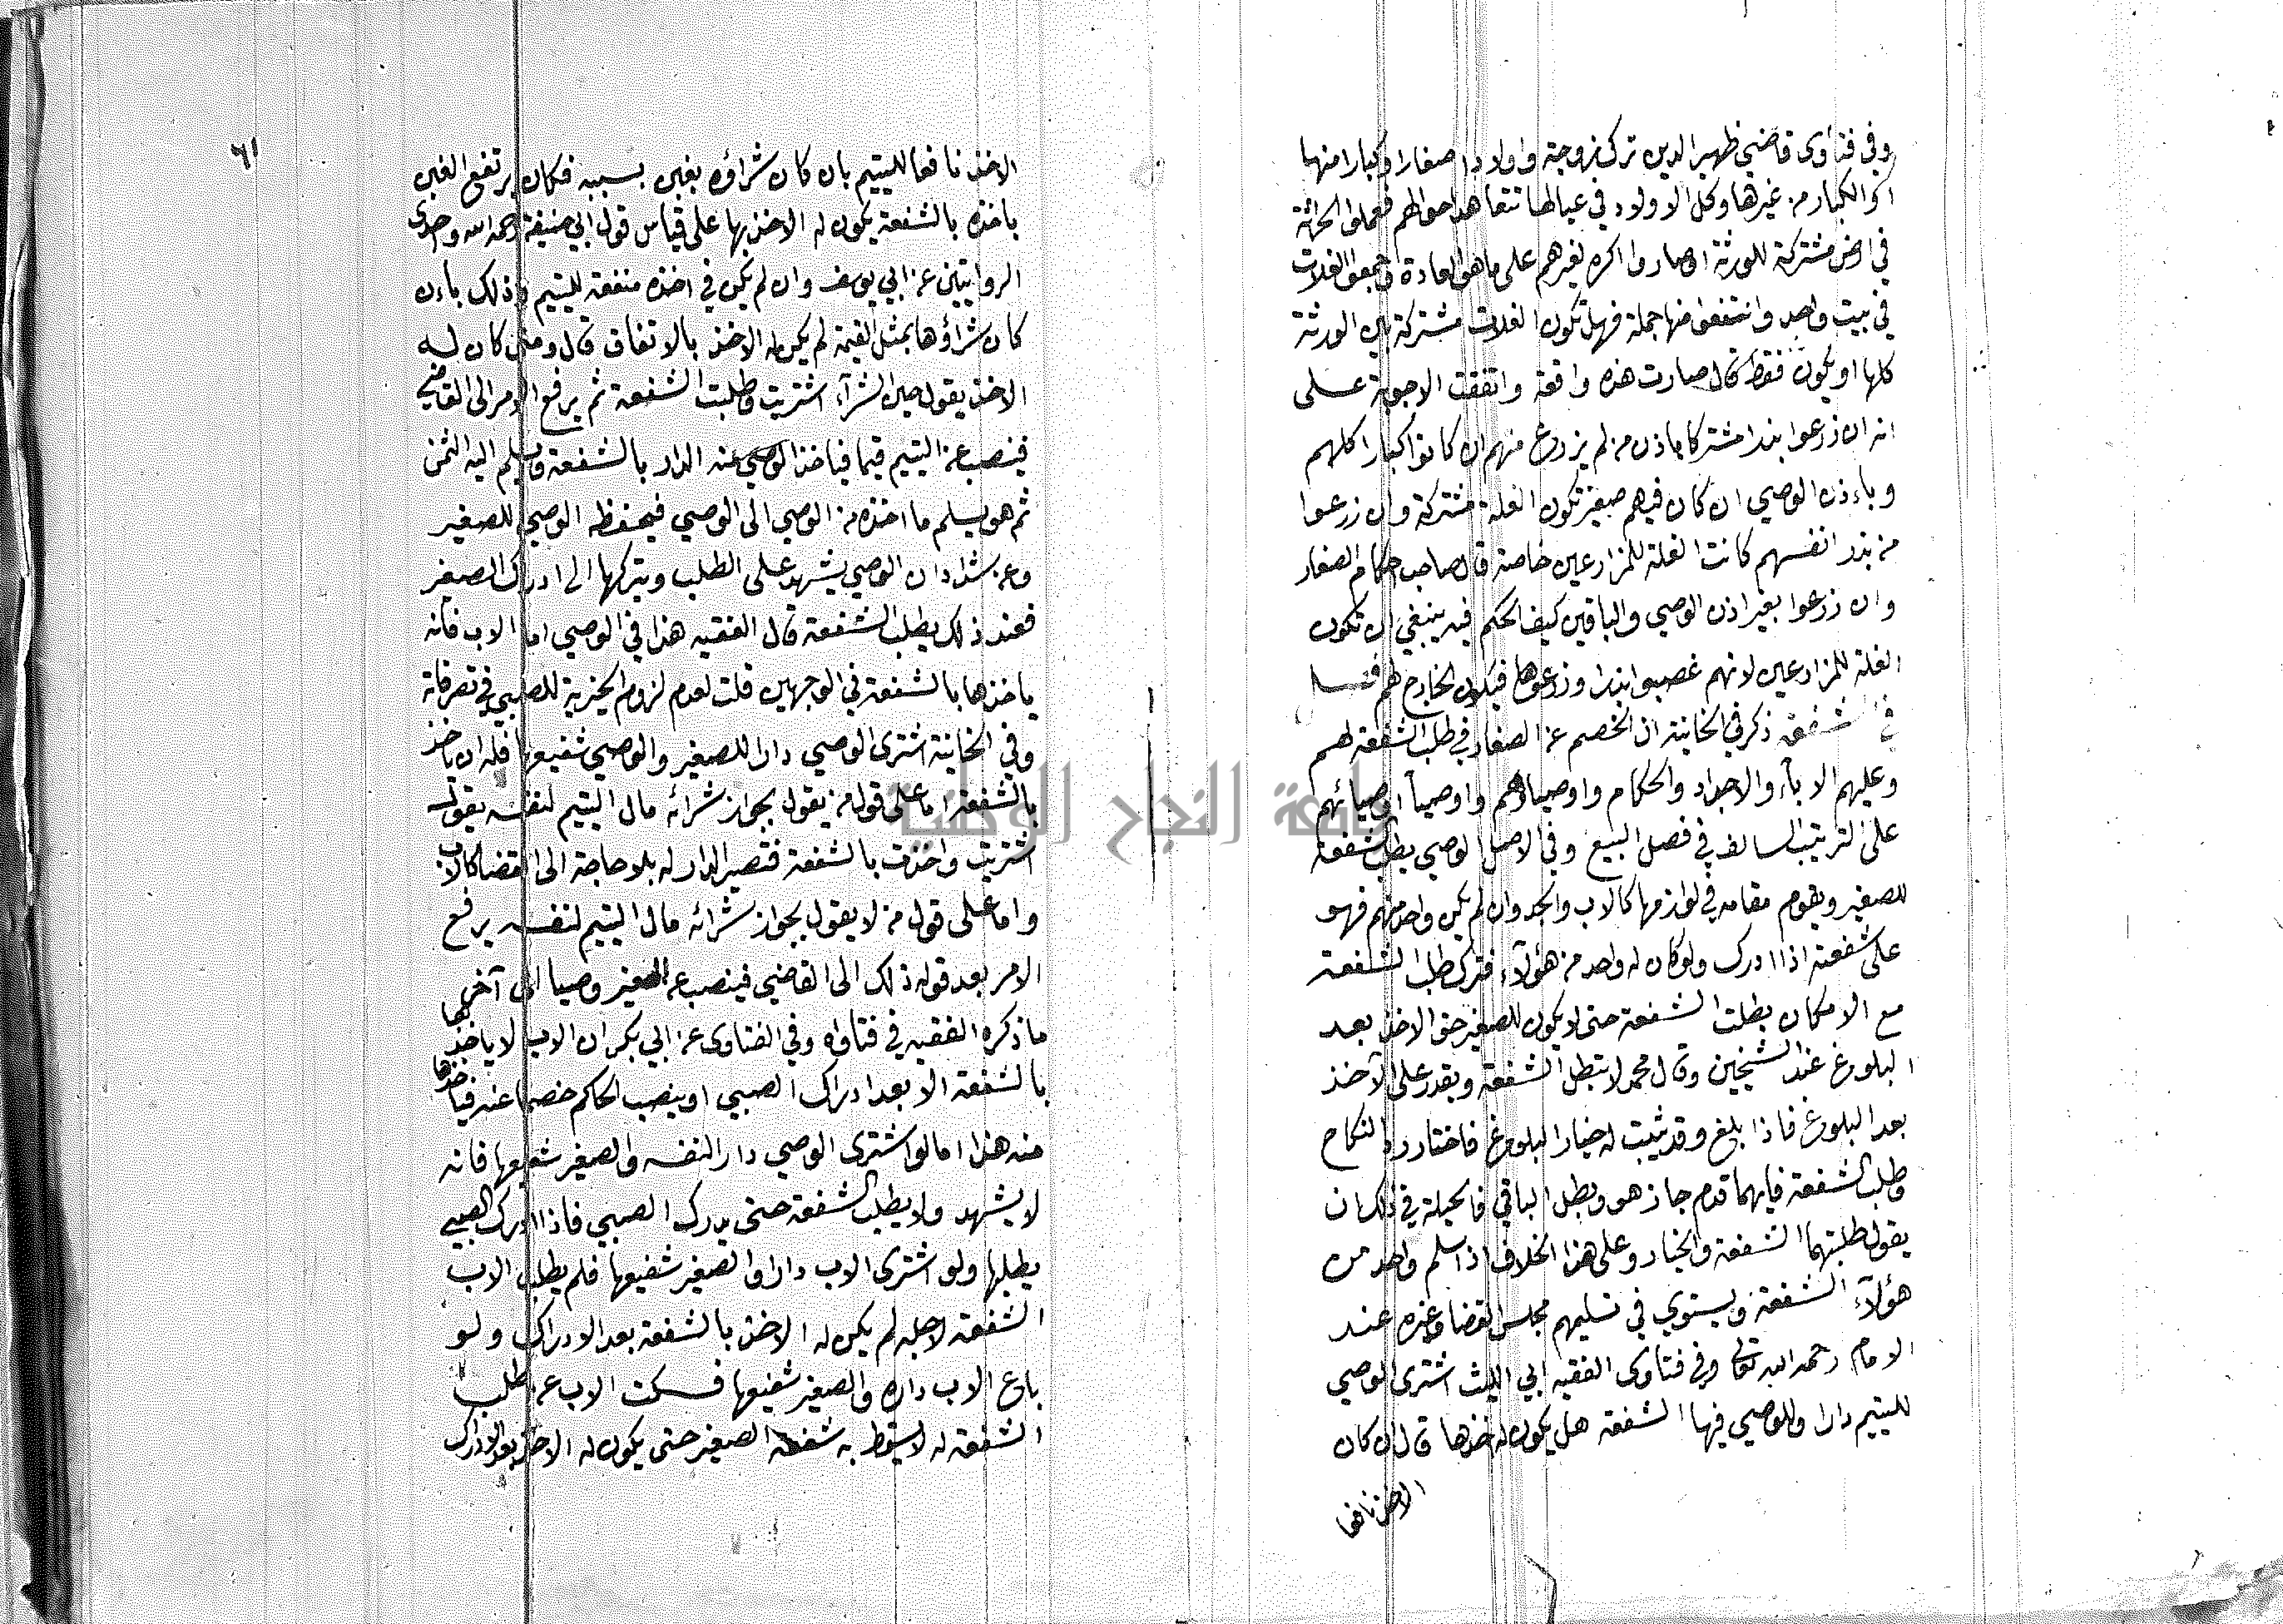 وفي فتاوى قاضي ظهير الدين ترك زوجة واولادا صغارا وكبارا منها
او الكبار من غيرها وكل الاولاد في عيالها تتعاهد احوالهم فعملوا الحراثة
في ارض مشتركة للورثة او صاروا اكره لغيرهم على ما هو العادة وجمعوا الغلات
في بيت واحد وانتفقوا منها جملة فهل تكون الغلات مشتركة بين الورثة
كلها او يكون فقط قال صارت هذه واقعة واتفقت الاجوبة على
انه ان زرعوا بذرا مشتركا باذن من لم يزرع منهم ان كانوا كبارا كلهم
وباءذن الوصي ان كان فيهم صغير تكون الغلة مشتركة وان زرعوا
من بذر انفسهم كانت الغلة للمزارعين خاصة قال صاحب احكام الصغار
وان زرعوا بغير اذن الوصي والباقين كيف الحكم فيه ينبغي ان تكون
الغلة للمزارعين لانهم غصبوا بذرا وزرعوها فيكون الخارج لهم
في الشفعة ذكر في الخانية ان الخصم عن الصغار في طلب الشفعة لهم
وعليهم الابآء والاجداد والحكام واوصياؤهم واوصيآ اوصيائهم
على الترتيب السالف في فصل البيع وفي الاصل الوصي يطلب الشفعة
للصغير ويقوم مقامه في لوازمها كالاب والجد وان لم يكن واحد منهم فهو
على شفعته اذا ادرك ولو كان له واحد من هؤلآء فترك طلب الشفعة
مع الامكان بطلت الشفعة حتى لا يكون للصغير حق الاخذ بعد
البلوغ عند الشيخين وقال محمد لا تبطل الشفعة ويقدر على الآخذ
بعد البلوغ فاذا بلغ وقد ثبت له خيار البلوغ فاختار رد النكاح
وطلب الشفعة فايهما قدم جاز هو وبطل الباقي فالحيلة في ذلك ان
يقول طلبتهما الشفعة والخيار وعلى هذا الخلاف اذا سلم واحد من
هؤلآء الشفعة ويستوي في تسليمهم مجلس القضا وغيره عند
الامام رحمه الله تعالى وفي فتاوى الفقيه ابي الليث اشترى الوصي
لليتيم دارا وللوصي فيها الشفعة هل يكون له اخذها قال ان كان
الاخذ نافعا
٦١
الاخذ نافعا لليتيم بان كان شراؤه بغبن بسببه فكان يرتفع الغبن
باخذه بالشفعة يكون له الاخذ بها على قياس قول ابي حنيفة رحمه الله واحدى
الروايتين عن ابي يوسف وان لم يكن في اخذه منفعة لليتيم وذلك باءن
كان شراؤها بمثل القيمة لم يكن له الاخذ بالاتفاق قال ومتى كان له
الاخذ يقول حين الشرآء اشتريت وطلبت الشفعة ثم يرفع الامر الى القاضي
فينصب عن اليتيم قيما فياخذ الوصي عنه الدار بالشفعة ويسلم اليه الثمن
ثم هو يسلم ما اخذه من الوصي الى الوصي فيحفظه الوصي للصغير
وعن شداد ان الوصي يشهد على الطلب ويتركها الى ادرك الصغير
فعند ذلك يطلب الشفعة قال الفقيه هذا في الوصي اما الاب فانه
ياخذها بالشفعة في الوجهين قلت لعدم لزوم الخيرية للصبي في تصرفاته
وفي الخانية اشترى الوصي دارا للصغير والوصي شفيعها فله ان ياخذ
بالشفعة اما على قول من يقول بجواز شرائه مال اليتيم لنفسه يقول
اشتريت واخذت بالشفعة فتصير الدار له بلا حاجة الى القضا كالاب
واما على قول من لا يقول بجواز شرائه مال اليتيم لنفسه يرفع
الامر بعد قوله ذلك الى القاضي فينصب عن الصغير وصيا الى آخر
ما ذكره الفقيه في فتاواه وفي الفتاوى عن ابي بكر ان الاب لا ياخذها
بالشفعة الا بعد ادراك الصبي او ينصب الحاكم خصما عنه فياخذها
منه هذا اما لو اشترى الوصي دارا لنفسه والصغير شفيعها فانه
لا يشهد ولا يطلب الشفعة حتى يدرك الصبي فاذا ادرك الصبي
يطلبها ولو اشترى الاب دارا والصغير شفيعها فلم يطلب الاب
الشفعة لاجله لم يكن له الاخذ بالشفعة بعد الادراك ولو
باع الاب داره والصغير شفيعها فسكت الاب عن طلب
الشفعة له لا يسقط به شفعة الصغير حتى يكون له الاخذ بعد الادراك
جامعة النجاح الوطنية